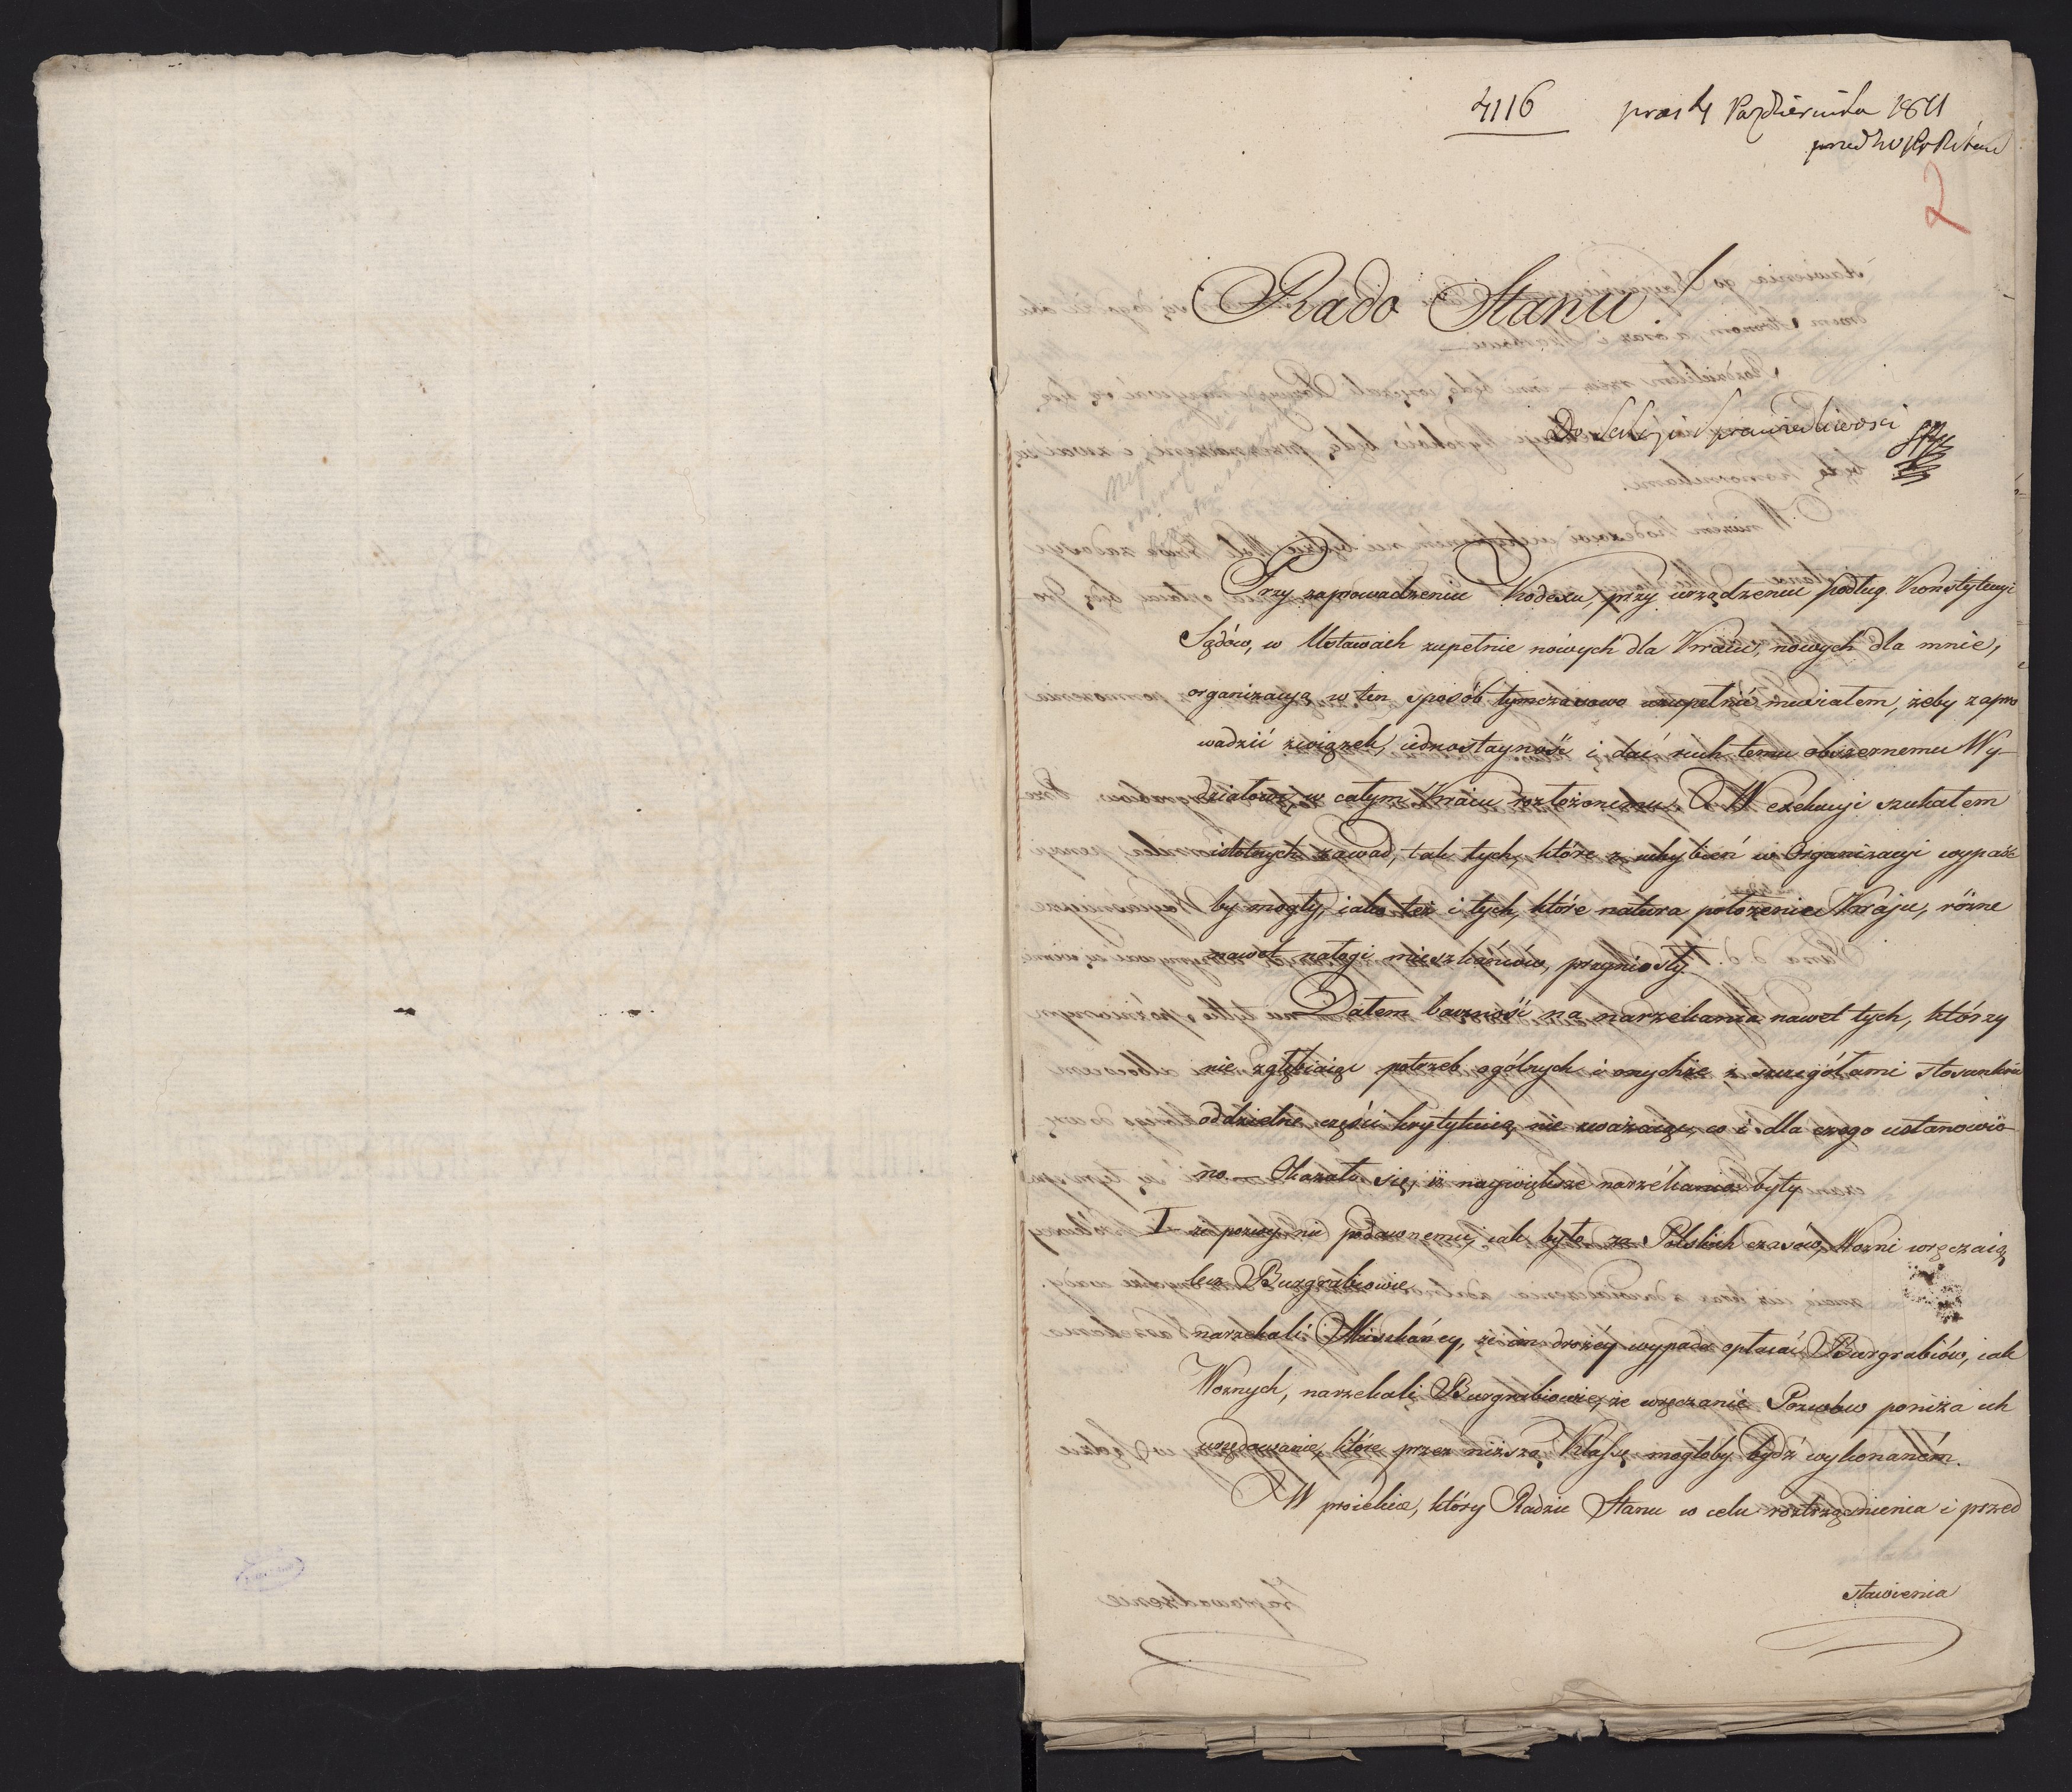 4116
præs 4 Października 1811
2
Rado Stanu!
Do Sekcyi Sprawiedliwości
Przy zaprowadzeniu Kodexu, przy urządzeniu podług Konstytucyi
Sądów, w Ustawach zupełnie nowych dla Kraiu, nowych dla mnie,
organizacyą w ten sposób tymczasowo uzupełnić musiałem, żeby zapro
wadzić związek, iednostayność i dać ruch temu obszernemu Wy-
działowi, w całym Kraiu rozłożonemu. W exekucyi szukałem
istotnych zawad, tak tych, które z uchybień w Organizacyi wypaść
by mogły, iako też i tych, które natura położenie Kraju, różne
nawet nałogi mieszkańców, przyniosły.
Dałem baczność na narzekania nawet tych, którzy
nie zgłębiaiąc potrzeb ogólnych i onychże z szczegółami stosunków
oddzielne części krytykuią, nie zważaiąc, co i dla czego ustanowio-
no. — Okazało się, iż naywiększe narzekania były
I że pozwy nie podawnemu, iak było za Polskich czasów, Wozni wręczaią
lecz Burgrabiowie
narzekali Mieszkańcy, że im drożéy wypada opłacać Burgrabiów, iak
Woznych, narzekali Burgrabiowie, że wręczanie Pozwów poniża ich
urzędowanie, które przez niższą Klassę mogłoby bydź wykonaném.
W proiekcie, który Radzie Stanu w celu roztrząśnienia i przed
stawienia